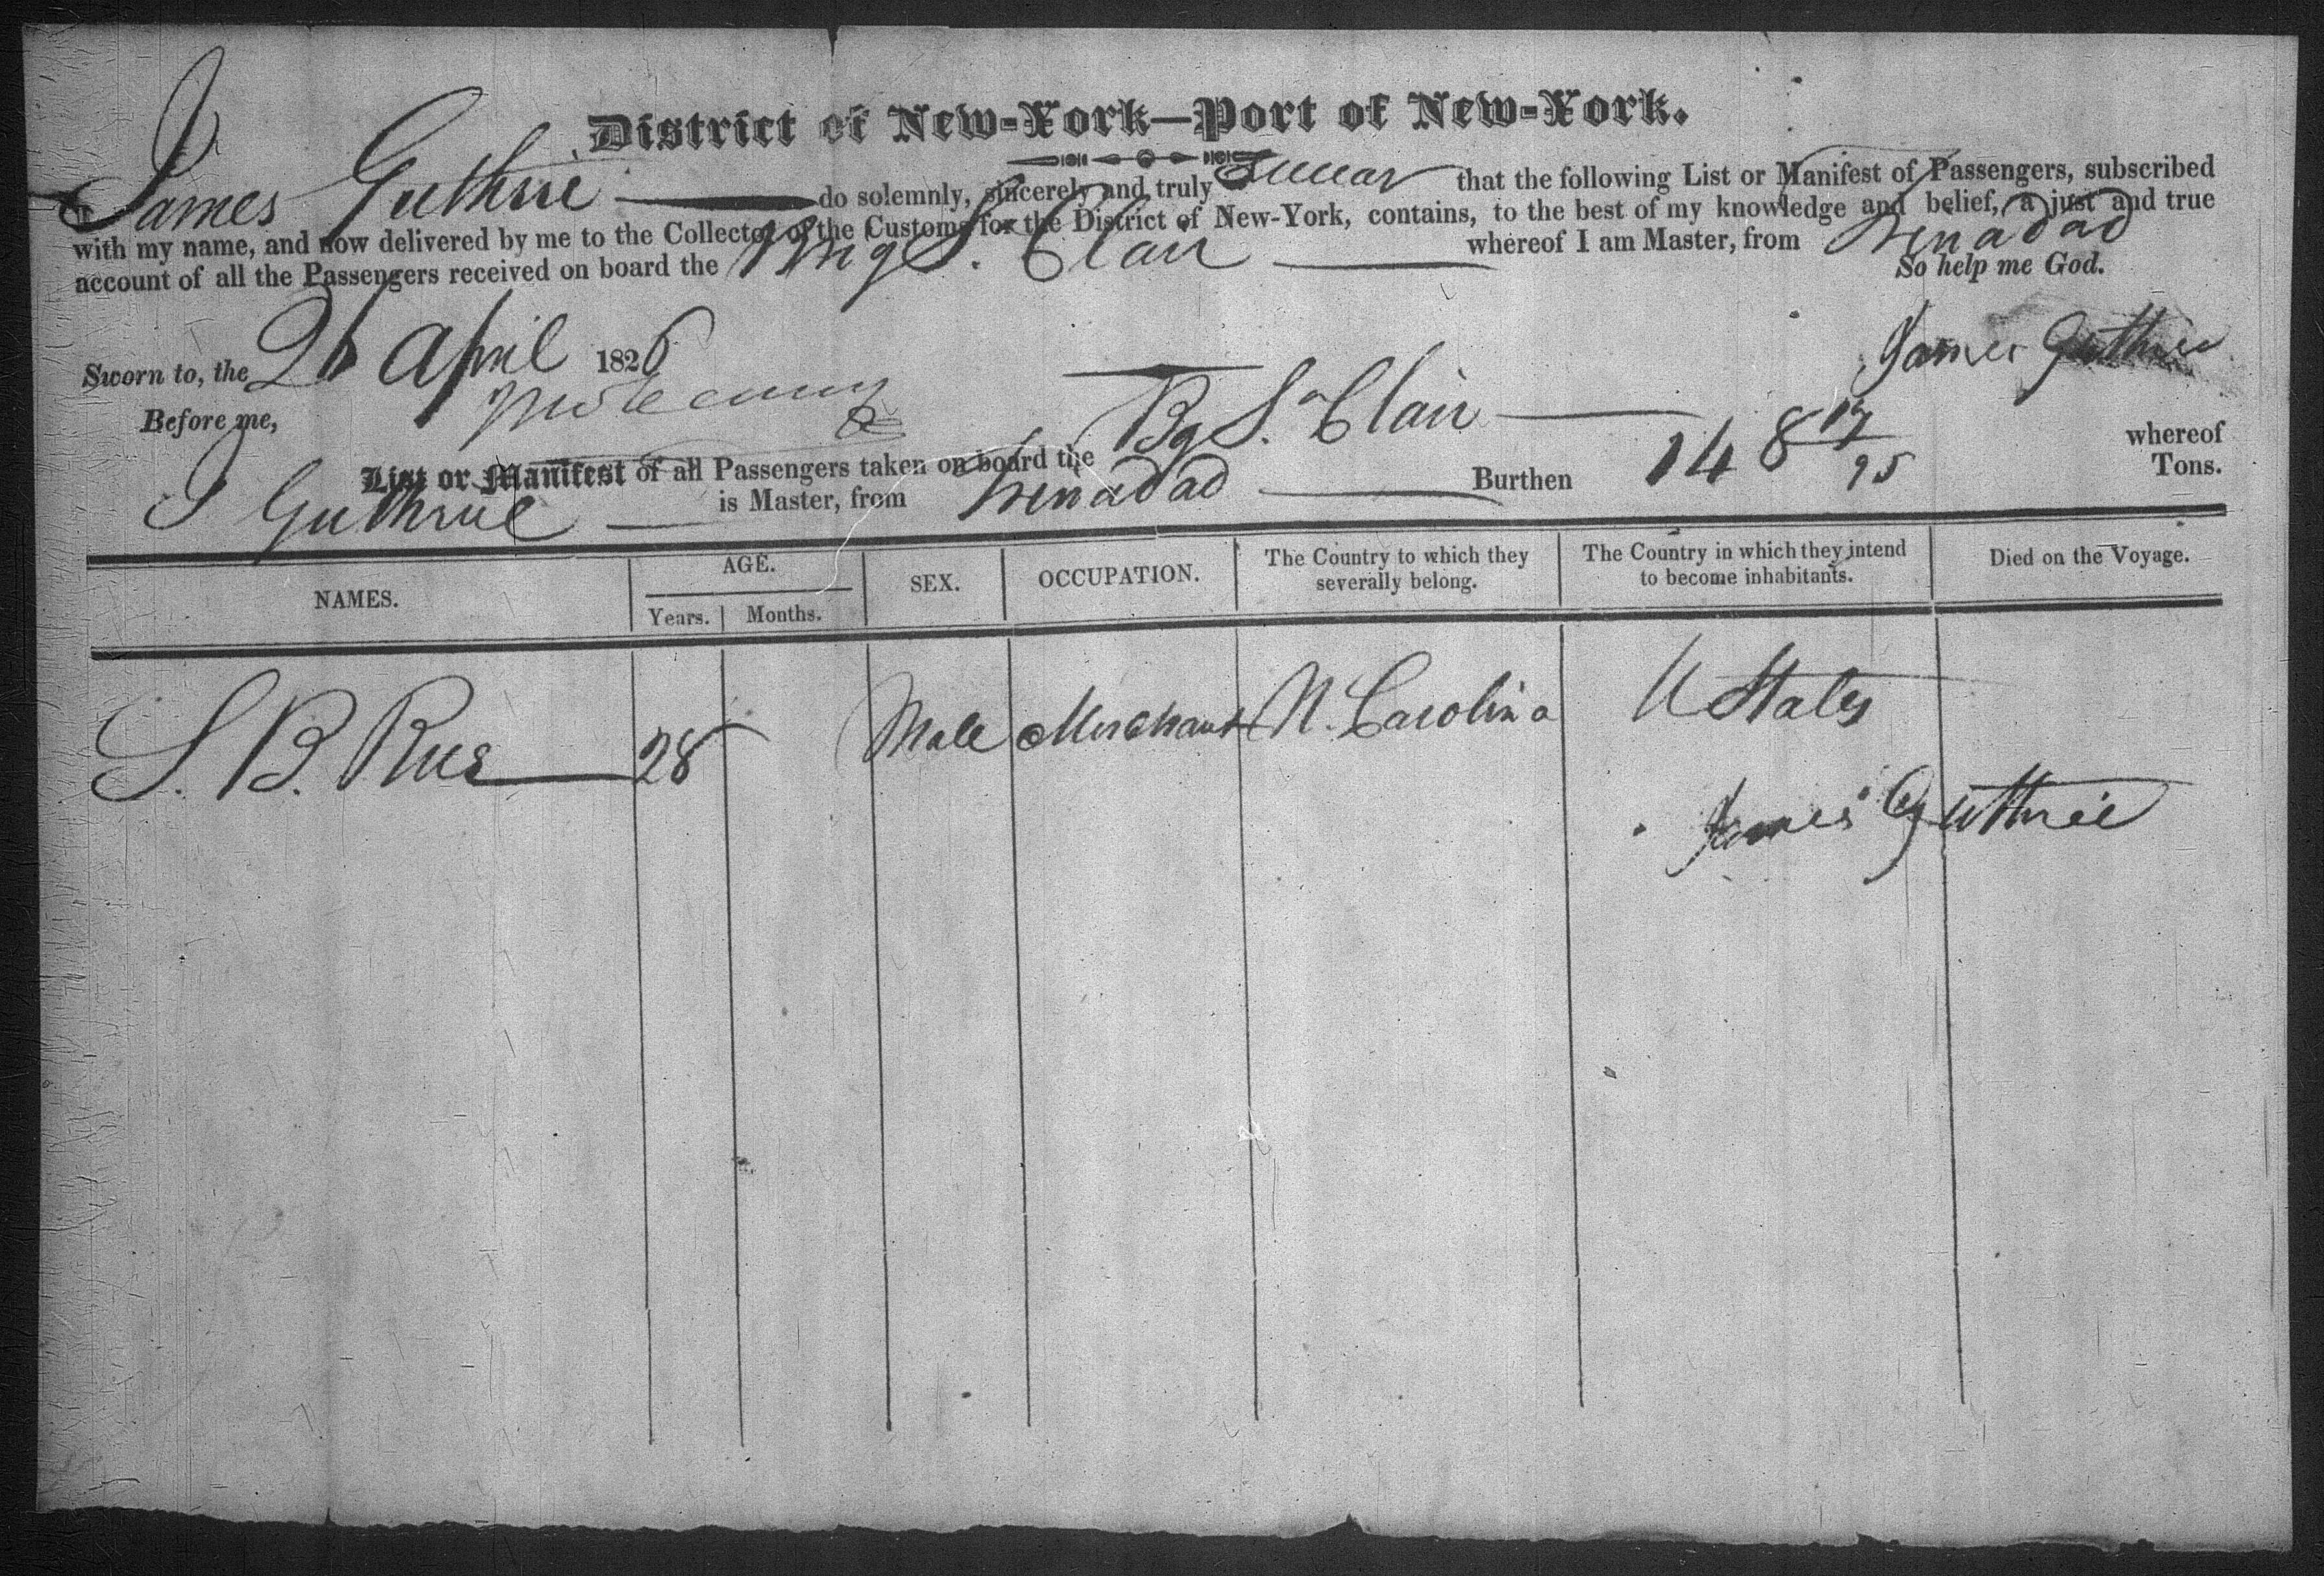 District of New-York—Port of New-York.
I, James Guthrie do solemnly, sincerely and truly Swear that the following List or Manifest of Passengers, subscribed
with my name, and now delivered by me to the Collector of the Customs for the District of New-York, contains, to the best of my knowledge and belief, a just and true
account of all the Passengers received on board the Brig St. Clair whereof I am Master, from Trinadad
So help me God.
Sworn to, the 26 April 1826
James Guthrie
Before me,
List or Manifest of all Passengers taken on board the Bg St. Clair whereof
J Guthrie is Master, from Trinadad Burthen 148 17/95 Tons.
NAMES. AGE. SEX. OCCUPATION. The Country to which they severally belong. The Country in which they intend to become inhabitants. Died on the Voyage.
Years. Months.
S. B. Rue 28 Male Merchant N. Carolina U States
James Guthrie